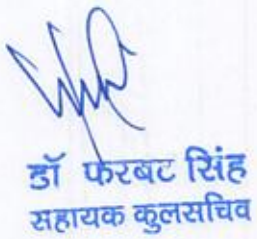 डॉ फरबट सिंह
सहायक कुलसचिव